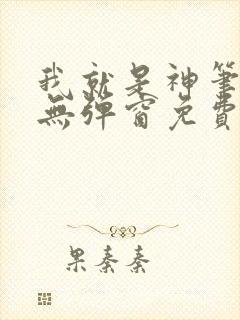 我就是神筆
無彈窗免費
果秦秦